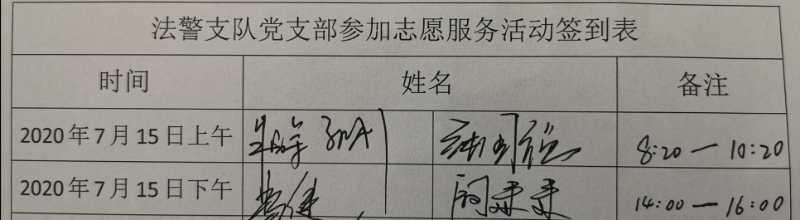 法警支队党支部参加志愿服务活动签到表
时间 姓名 备注
2020年7月15日上午 8:20一10:20
2020年7月15日下午 14:00一16:00